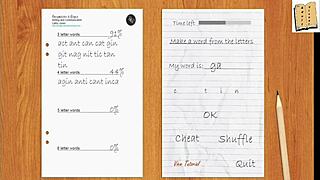 3 letter words 91%
act ant can cat gin
git nag nit tic tan
tin
4 letter words 44%
agin anti cant inca
5 letter words 0%
6 letter words 0%
Time left:
Make a word from the letters
My word is: ga
c t i n
OK
Cheat Shuffle
View Tutorial Quit